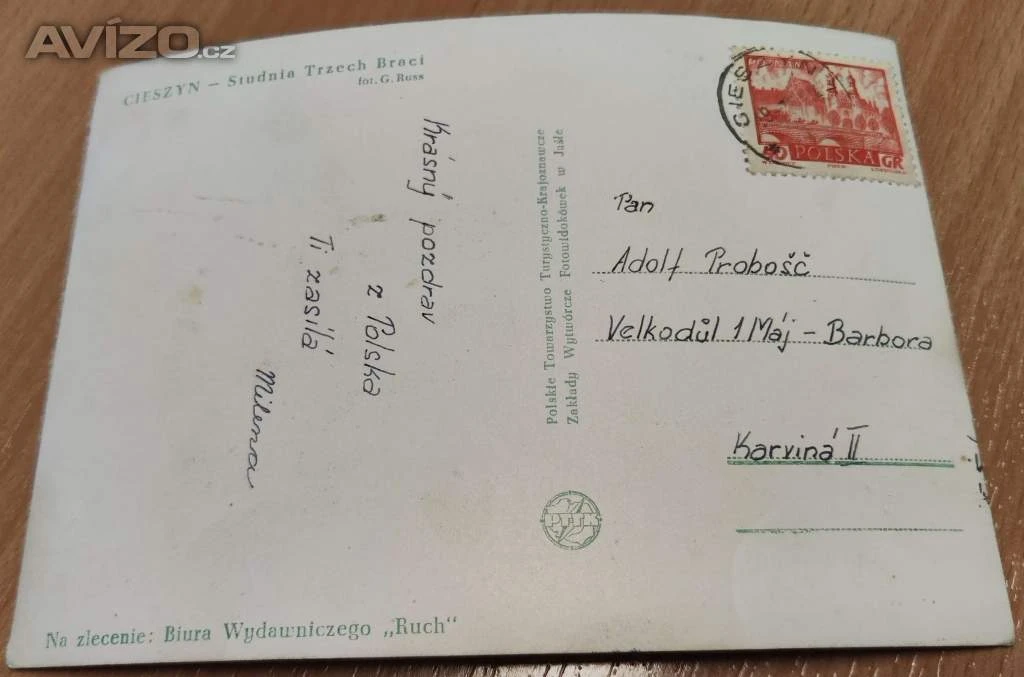 AVÍZO.cz
CIESZYN – Studnia Trzech Braci
fot. G. Russ
Krásný pozdrav
z Polska
Ti zasílá
Milena
Polskie Towarzystwo Turystyczno-Krajoznawcze
Zakłady Wytwórcze Fotowidokówek w Jaśle
POLSKA GR
Pan
Adolf Probošč
Velkodůl 1 Máj – Barbora
Karviná II
PTTK
Na zlecenie: Biura Wydawniczego „Ruch"